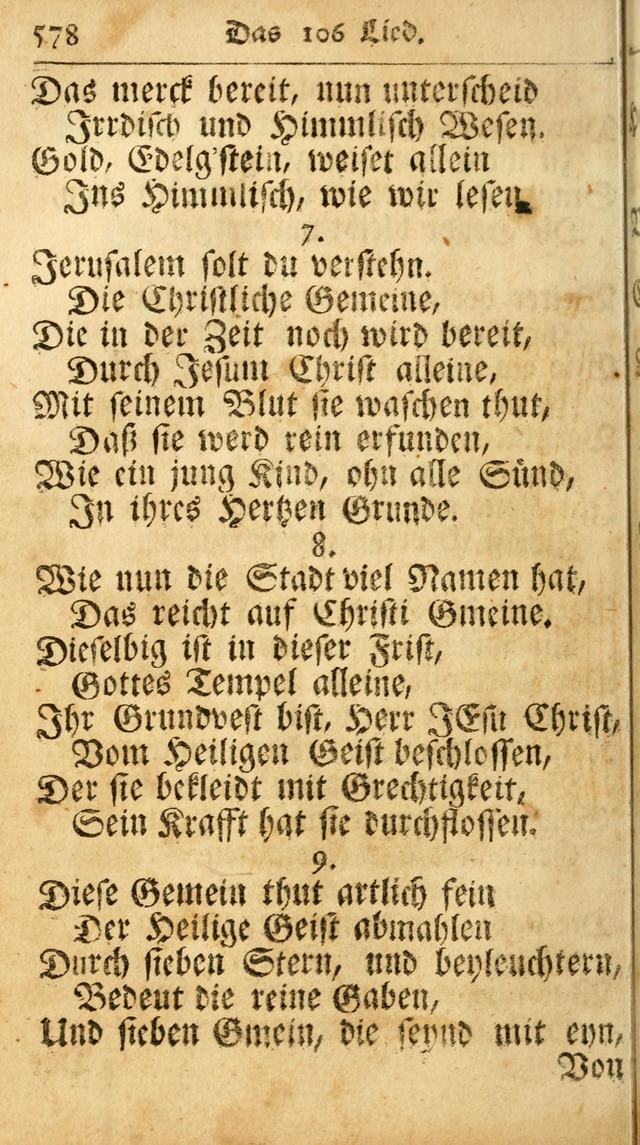 578 Das 106 Lied.
Das merck bereit, nun unterscheid
Irrdisch und Himmlisch Wesen.
Gold, Edelg'stein, weiset allein
Ins Himmlisch, wie wir lesen.
7.
Jerusalem solt du verstehn.
Die Christliche Gemeine,
Die in der Zeit noch wird bereit,
Durch Jesum Christ alleine,
Mit seinem Blut sie waschen thut,
Daß sie werd rein erfunden,
Wie ein jung Kind, ohn alle Sünd,
In ihres Hertzen Grunde.
8.
Wie nun die Stadt viel Namen hat,
Das reicht auf Christi Gmeine.
Dieselbig ist in dieser Frist,
Gottes Tempel alleine,
Ihr Grundvest bist, Herr JEsu Christ,
Vom Heiligen Geist beschlossen,
Der sie bekleidt mit Grechtigkeit,
Sein Krafft hat sie durchflossen.
9.
Diese Gemein thut artlich fein
Der Heilige Geist abmahlen
Durch sieben Stern, und beyleuchtern,
Bedeut die reine Gaben,
Und sieben Gmein, die seynd mit eyn,
Von